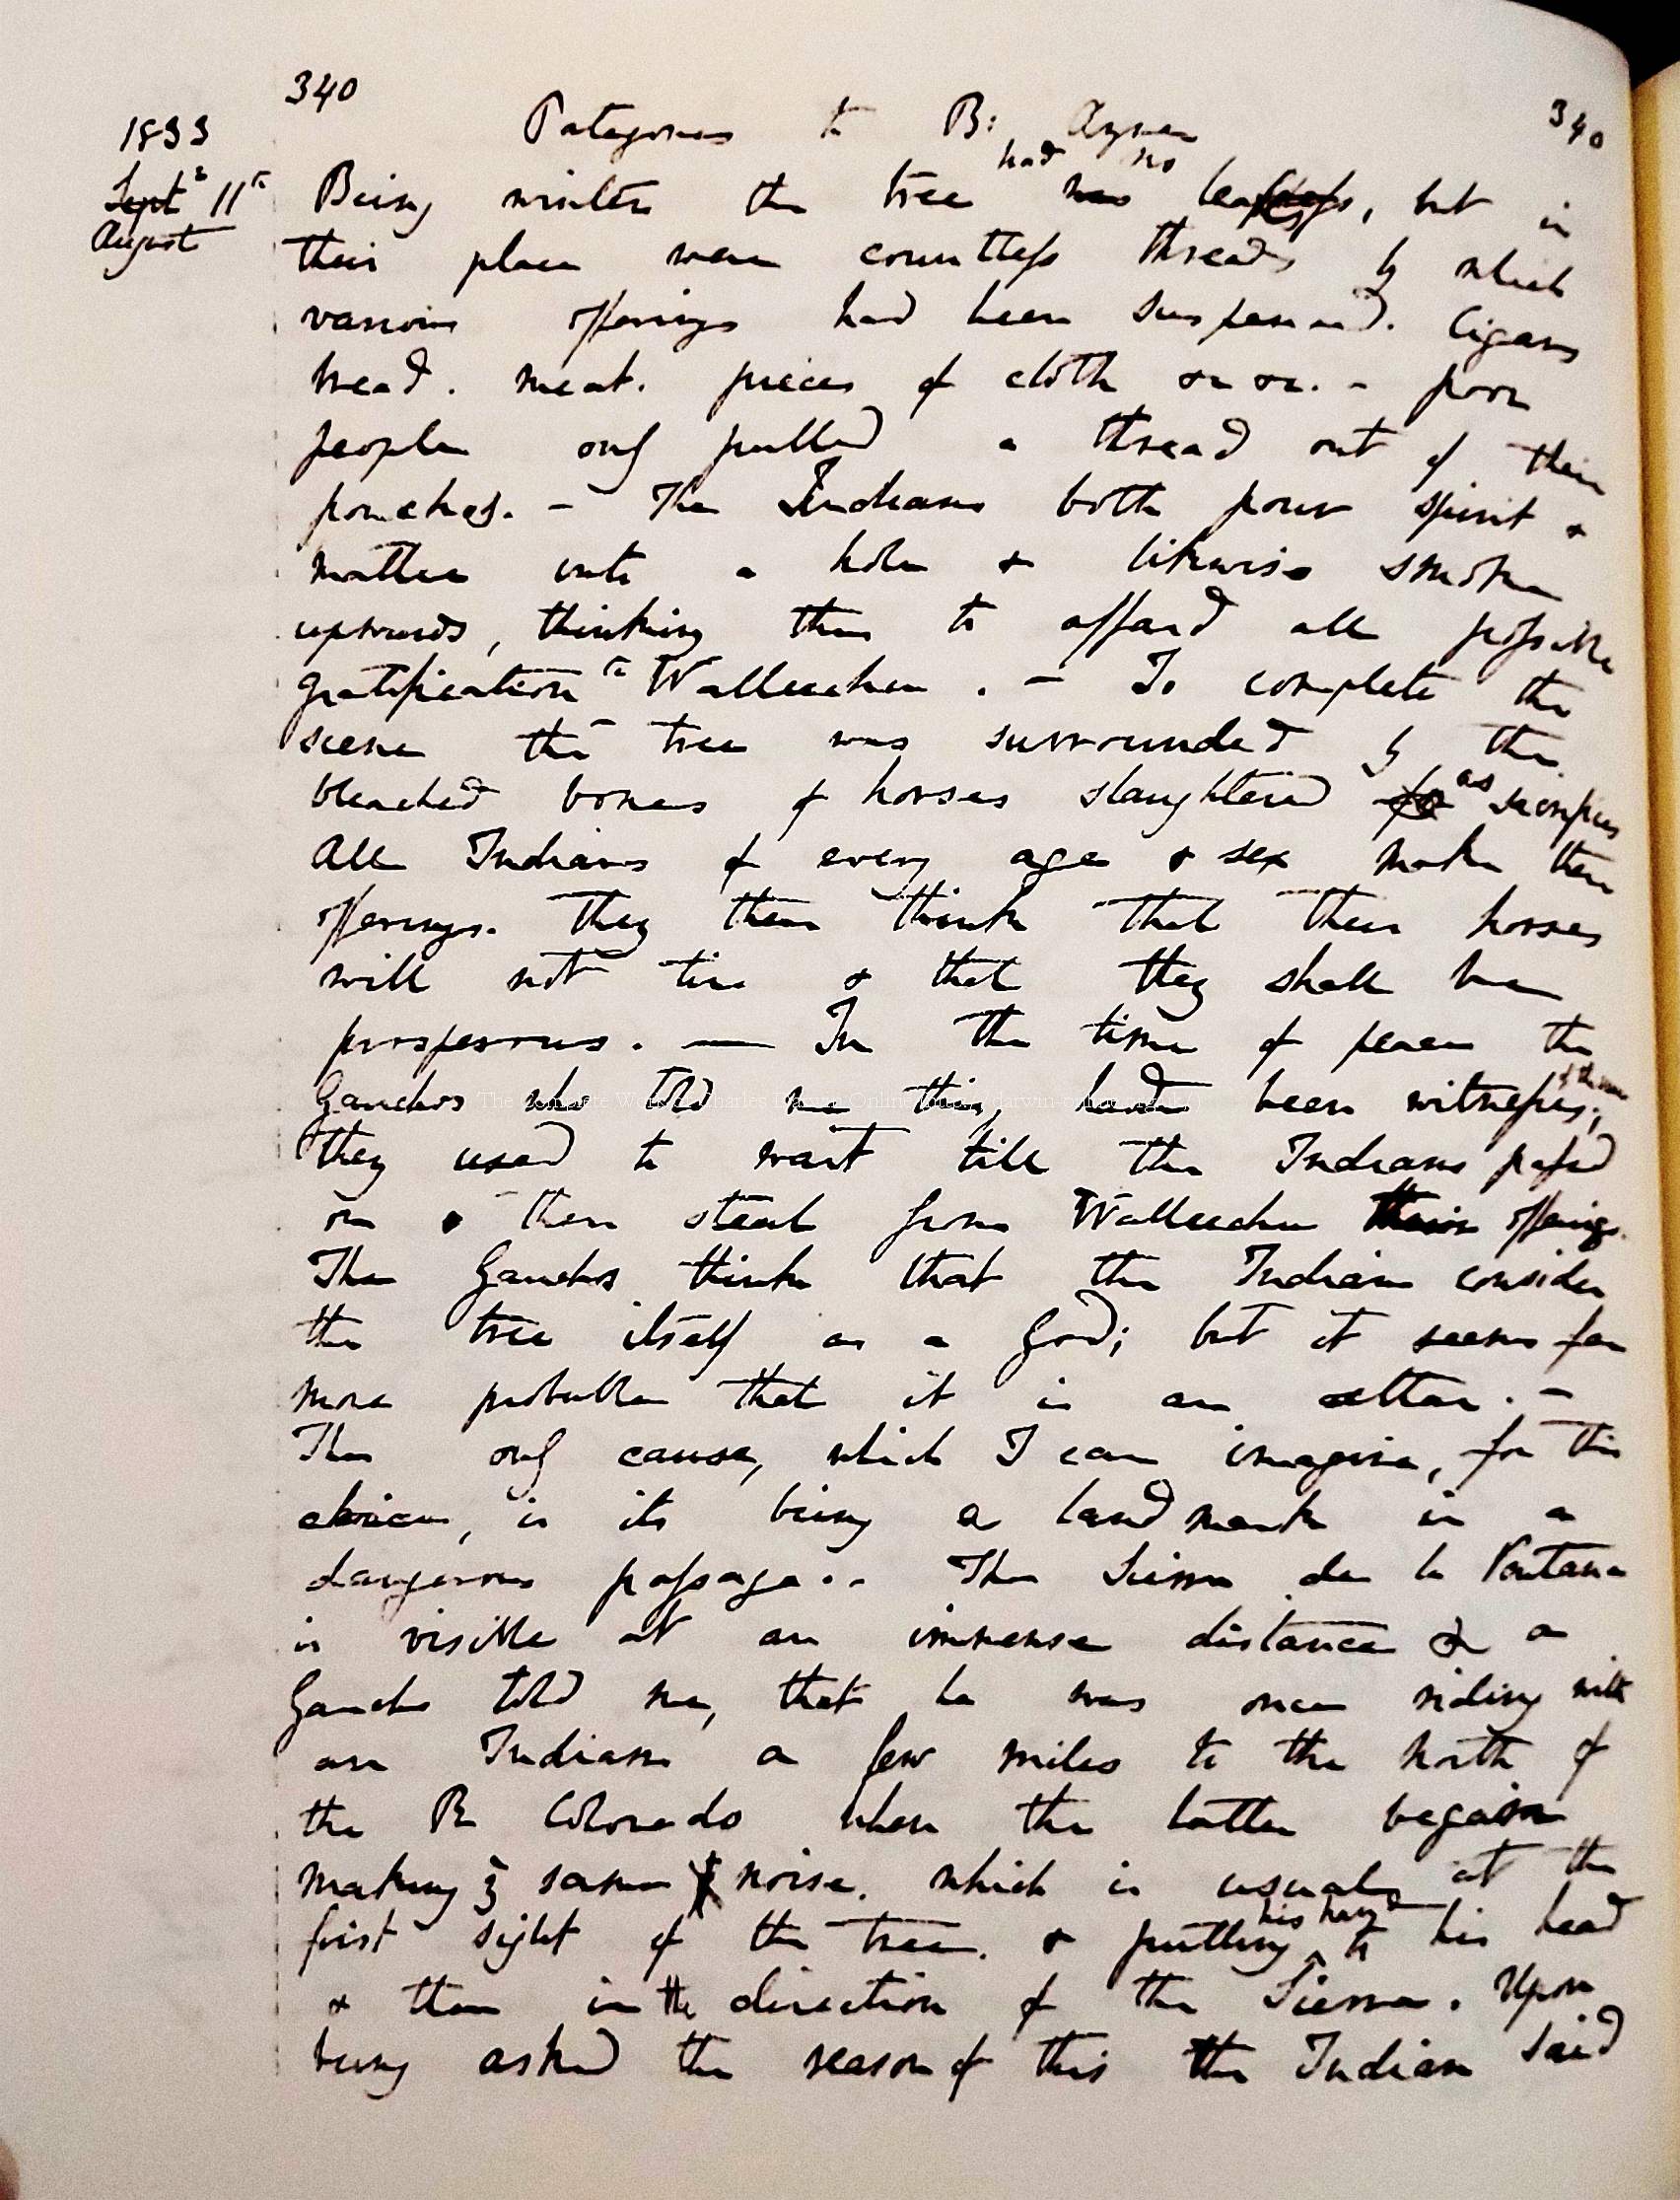 340
340
1833
Patagones to B: Ayres
Septr 11th
August
had no
Being winter the tree was leafless, but in
their place were countless threads by which
various offerings had been suspended. Cigars
bread. meat. pieces of cloth &c &c. - poor
people only pulled a thread out of their
ponchos. - The Indians both pour spirit &
mattee into a hole & likewise smoke
upwards, thinking thus to afford all possible
gratification to Walleechu. - To complete the
scene the tree was surrounded by the
bleached bones of horses slaughtered as sacrifices
All Indians of every age & sex make their
offerings. They then think that their horses
will not tire & that they shall be
prosperous. — In the time of peace the
of the scene
Gauchos who told me this, had been witnesses;
they used to wait till the Indians passed
on & then steal from Walleechu their offerings.
The Gauchos think that the Indians consider
the tree itself as a God; but it seems far
more probable that it is an altar. -
The only cause, which I can imagine, for this
choice, is its being a land mark in a
dangerous passage. - The Sierra de la Ventana
is visible at an immense distance & a
Gaucho told me, that he was once riding with
an Indian a few miles to the north of
the R. Colorado when the latter began
making same noise. which is usual at the
his hand
first sight of the tree. & putting to his head
& then in the direction of the Sierra. Upon
being asked the reason of this the Indian said